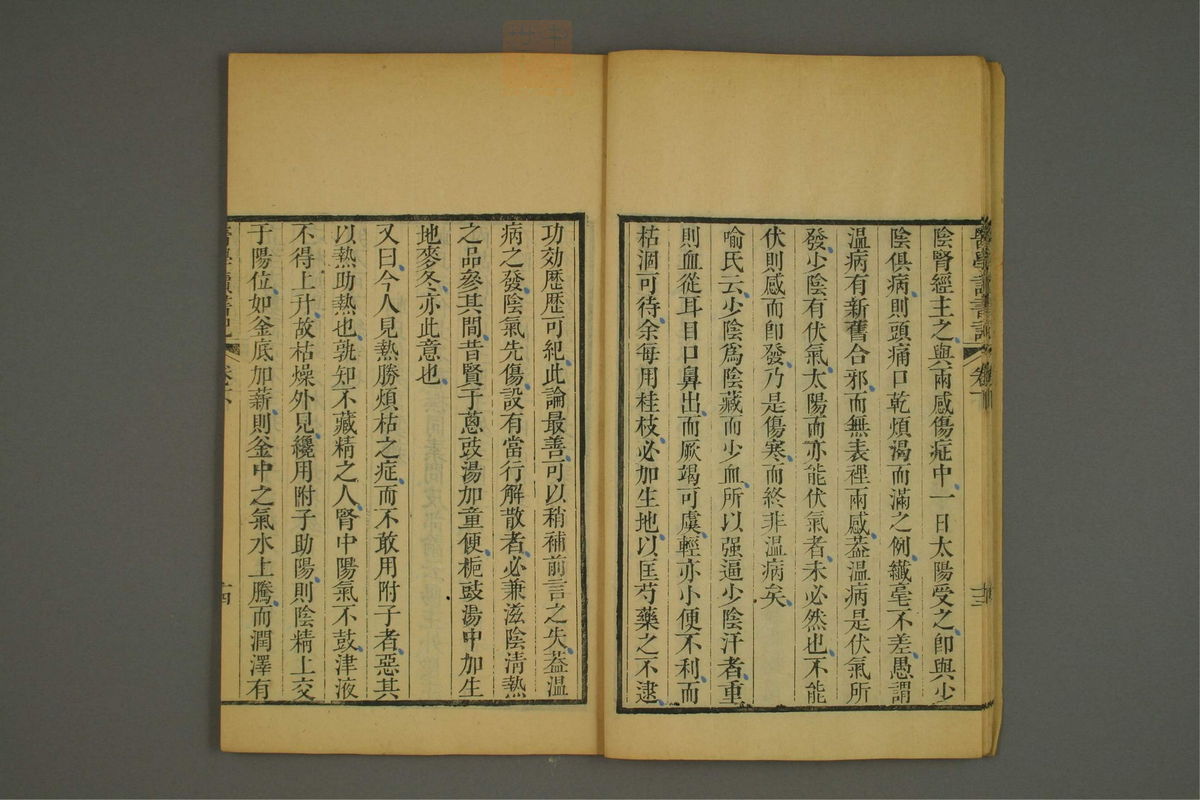 醫學讀書記 卷下 十三
陰腎經主之與兩感傷症中一日太陽受之卽與少
陰俱病則頭痛口乾煩渴而滿之例纖毫不差愚謂
溫病有新舊合邪而無表裡兩感葢溫病是伏氣所
發少陰有伏氣太陽而亦能伏氣者未必然也不能
伏則感而卽發乃是傷寒而終非溫病矣
喻氏云少陰爲陰藏而少血所以强逼少陰汗者重
則血從耳目口鼻出而厥竭可虞輕亦小便不利而
枯涸可待余每用桂枝必加生地以匡芍藥之不逮
功効歷歷可紀此論最善可以稍補前言之失葢溫
病之發陰氣先傷設有當行解散者必兼滋陰淸熱
之品參其間昔賢于蔥豉湯加童便梔豉湯中加生
地麥冬亦此意也
又曰今人見熱勝煩枯之症而不敢用附子者惡其
以熱助熱也孰知不藏精之人腎中陽氣不鼓津液
不得上升故枯燥外見纔用附子助陽則陰精上交
于陽位如釜底加薪則釜中之氣水上騰而潤澤有
醫學讀書記 卷下 十四